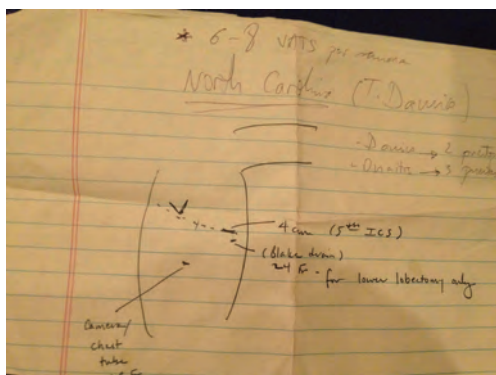 * 6-8 VATS per
North Carolina (T. D'Amico)
→ 2 ports
- Onaitis → 3
4 cm (5th ICS)
(Blake drain)
24 Fr - for lower lobectomy only
Camera/
chest
tube